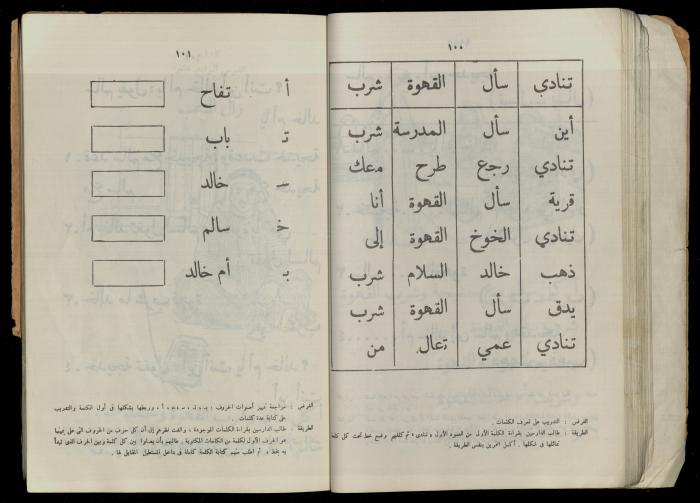 ١٠٠
تنادي سأل القهوة شرب
أين سأل المدرسة شرب
تنادي رجع طرح معك
قرية سأل القهوة أنا
تنادي الخوخ القهوة إلى
ذهب خالد السلام شرب
يدق سأل القهوة شرب
تنادي عمي تعال من
الغرض : التدريب على تعرف الكلمات .
الطريقة : طالب الدارسين بقراءة الكلمة الأولى من العمود الأول «تنادي» ثم كلفهم وضع خط تحت كل كلمة
تماثلها في شكلها . أكمل التمرين بنفس الطريقة .
١٠١
أ تفاح
تـ باب
سـ خالد
خـ سالم
بـ أم خالد
الغرض : مراجعة تمييز أصوات الحروف : وربطها بشكلها في أول الكلمة والتدريب
على كتابة عدة كلمات .
الطريقة : طالب الدارسين بقراءة الكلمات الموجودة ، والفت نظرهم إلى أن كل حرف من الحروف التي على يمينها
هو الحرف الأول لكلمة من الكلمات المكتوبة . طالبهم بأن يصلوا بين كل كلمة وبين الحرف الذي تبدأ
به بخط ، ثم اطلب منهم كتابة الكلمة كاملة في داخل المستطيل المقابل لها .